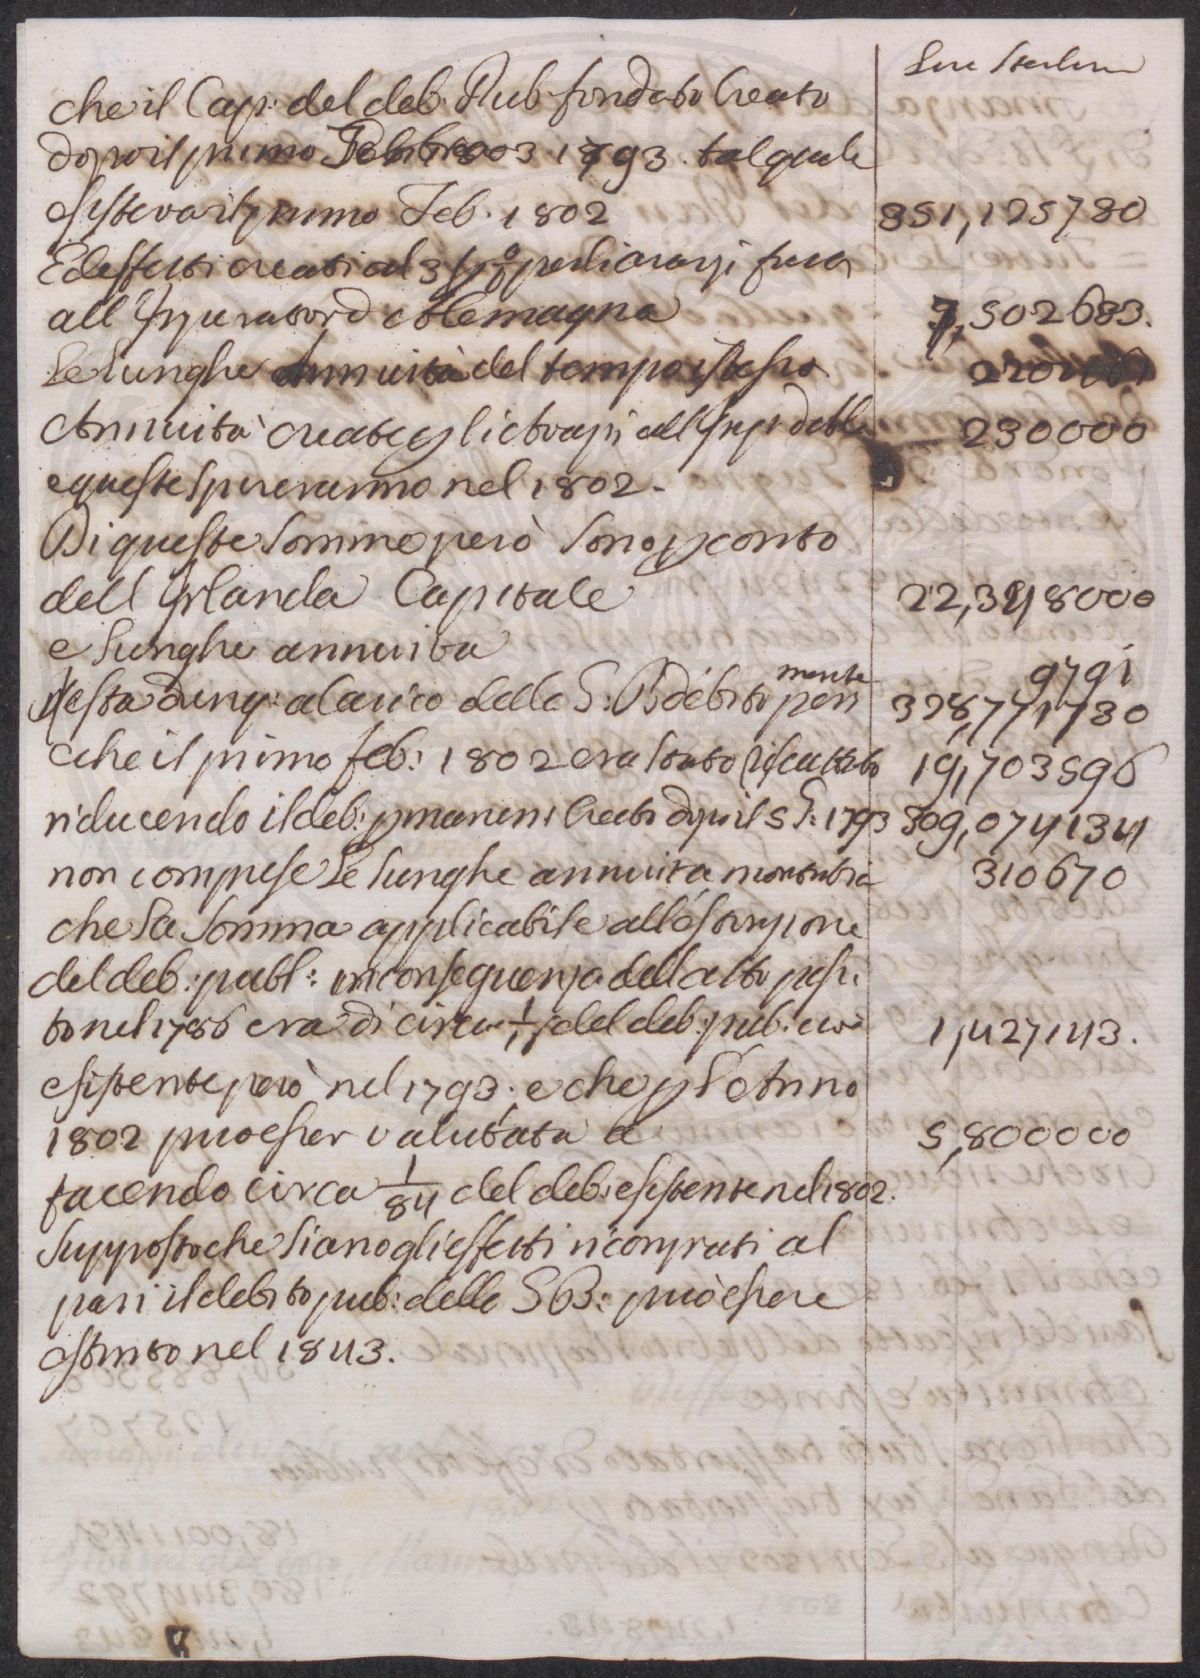 Lire Sterline
che il Cap: del deb. Pub. fondato Creato
dopo il primo 1793. tal quale
esisteva il primo Feb. 1802 351,125730
Ed effetti creati al 3 p% per li avanzi fatti
all'Imperatore d'Alemagna 7,502633.
Le lunghe Annuità del tempo istesso
Annuità create p. li avanzi all'Imp: d'All: 230000
e queste spireranno nel 1802.
Di queste Somme però sono p conto
dell'Irlanda Capitale 22,348000
e lunghe annuità 9791
Resta dunq: a carico della G: B débito permente 328,771730
che il primo feb: 1802 era stato riscattato 19,703596
riducendo il deb: pmanen: Creato dopo il 5 G: 1793 309,0741341
non comprese Le lunghe annuità montanti a 310670
che La Somma applicabile all'éstinzione
del deb: publ: in conseguenza dell'atto passa
to nel 1786 era di circa del deb: pub: 1,427143.
esistente però nel 1793; e che p l'Anno
1802 può esser valutata a 5,800000
facendo circa 1/84 del deb: esistente nel 1802.
Supposto che Siano gli effetti ricomprati al
pari il debito pub: della G B: può essere
estinto nel 1843.